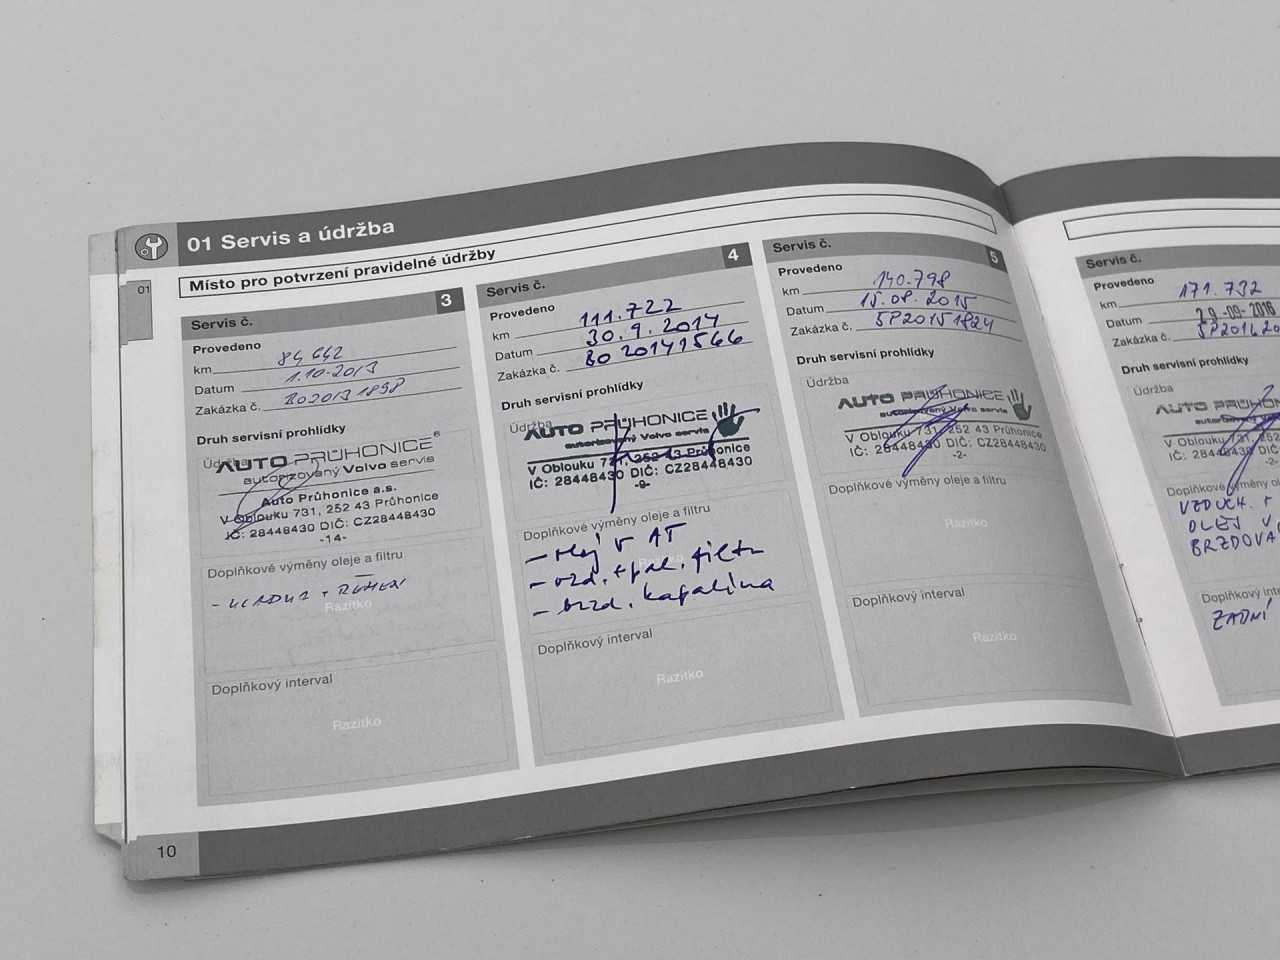 01 Servis a údržba
Místo pro potvrzení pravidelné údržby
01
Servis č. 3
Provedeno
km 84 642
Datum 1.10-2013
Zakázka č. BO2013 1898
Druh servisní prohlídky
Údržba
AUTO PRŮHONICE®
autorizovaný Volvo servis
Auto Průhonice a.s.
V Oblouku 731, 252 43 Průhonice
IČ: 28448430 DIČ: CZ28448430
-14-
Doplňkové výměny oleje a filtru
Razítko
Doplňkový interval
Razítko
Servis č. 4
Provedeno
km 111.722
Datum 30.9.2014
Zakázka č. BO 20141566
Druh servisní prohlídky
Údržba
AUTO PRŮHONICE
autorizovaný Volvo servis
V Oblouku 731, 252 43 Průhonice
IČ: 28448430 DIČ: CZ28448430
-9-
Doplňkové výměny oleje a filtru
- olej v AT
- vzd. + pal. filtr
- brzd. kapalina
Doplňkový interval
Razítko
Servis č. 5
Provedeno
km 140.798
Datum 15.08.2015
Zakázka č. SP20151824
Druh servisní prohlídky
Údržba
AUTO PRŮHONICE
autorizovaný Volvo servis
V Oblouku 731, 252 43 Průhonice
IČ: 28448430 DIČ: CZ28448430
-2-
Doplňkové výměny oleje a filtru
Razítko
Doplňkový interval
Razítko
10
Servis č.
Provedeno
km 171.732
Datum 29-09-2016
Zakázka č. SP201620
Druh servisní prohlídky
Údržba
AUTO PRŮHON
autorizovaný Vo
V Oblouku 731, 252
IČ: 28448430 DIČ
-2-
Doplňkové výměny ol
VZDUCH. +
OLEJ V
BRZDOVÁ
Doplňkový inte
ZADNÍ